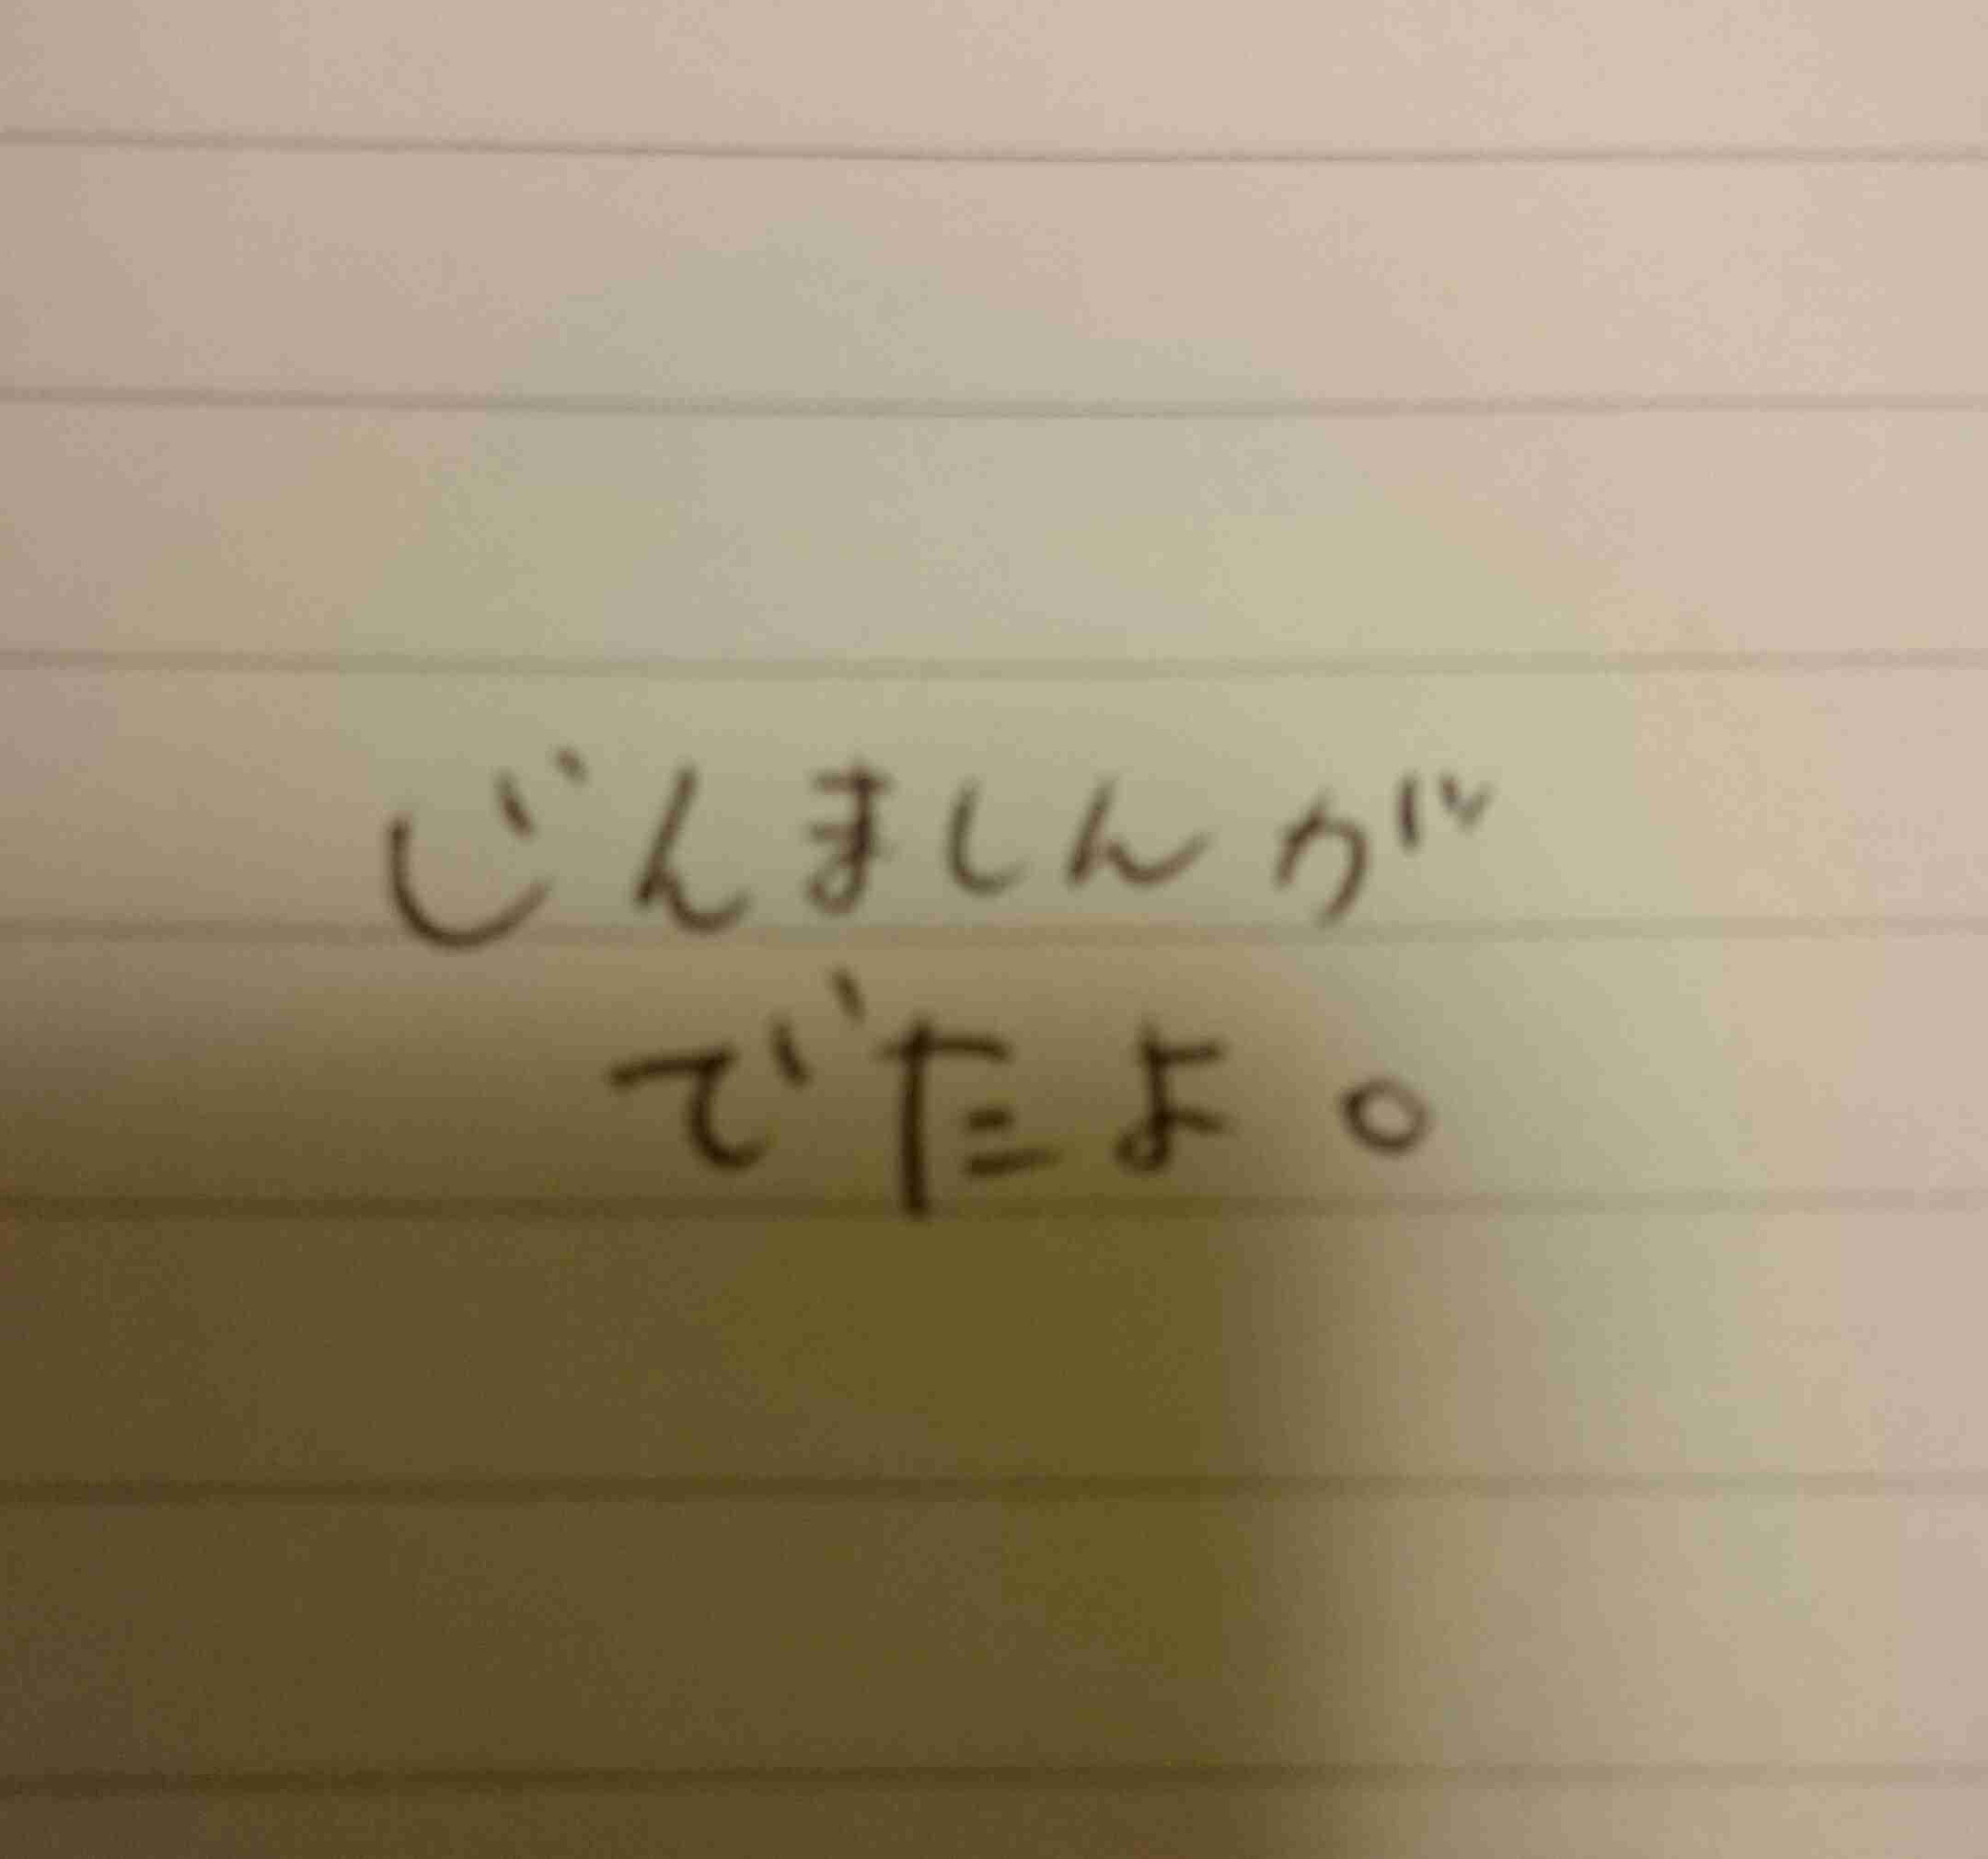 じんましんが
でたよ。